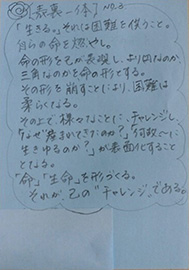 表裏一体 NO.3
「生きる。」それは困難を伴うこと。
自らの命を燃やし。
命の形を己が表現し、より円なのか
三角なのかを命の形とする。
その形を崩すことにより、困難は
柔らぐになる。
その上で、様々なことに、チャレンジし、
「なぜ、産まれてきたのか?」「何故〜に
生きゆるのか?」が表面化すること
となる。
「命」「生命」を形づくる。
それが、己の"チャレンジ"である。